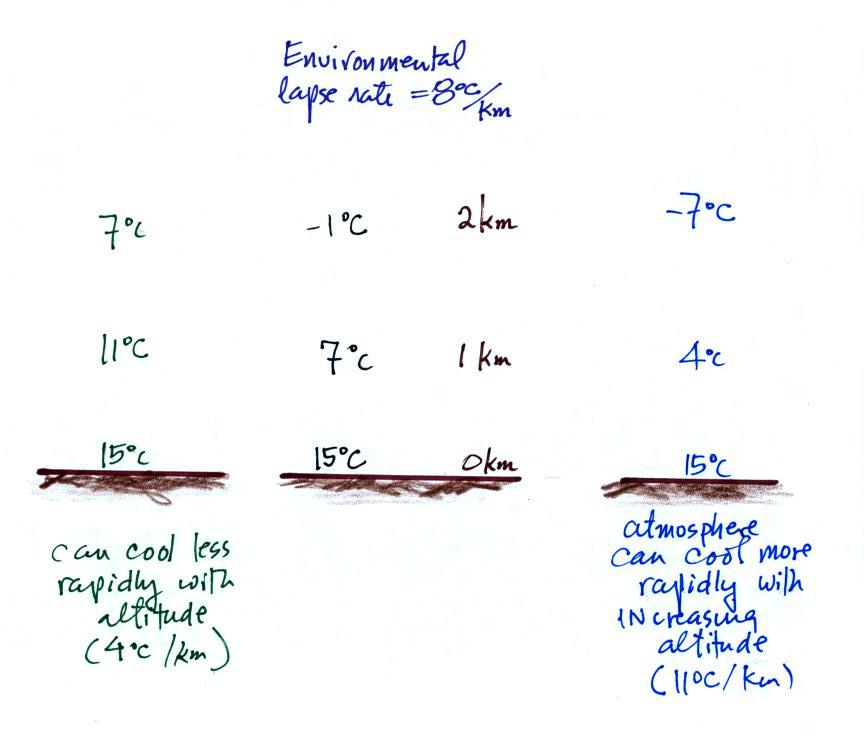 Environmental
lapse rate = 8°C/km
7°C
-1°C
2km
-7°C
11°C
7°C
1 km
4°C
15°C
15°C
0km
15°C
can cool less
rapidly with
altitude
(4°C/km)
atmosphere
can cool more
rapidly with
INcreasing
altitude
(11°C/km)